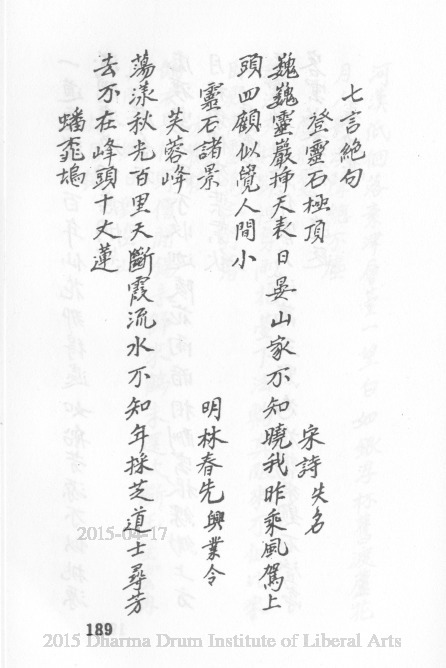 七言絶句
登靈石極頂　宋詩失名
巍巍靈巖揷天表日晏山家不知曉我昨乘風駕上
頭四顧似覺人間小
靈石諸景　明林春先興業令
芙蓉峰
蕩漾秋光百里天斷霞流水不知年採芝道士尋芳
去不在峰頭十丈蓮
蟠桃塢
2015-04-17
189
2015 Dharma Drum Institute of Liberal Arts